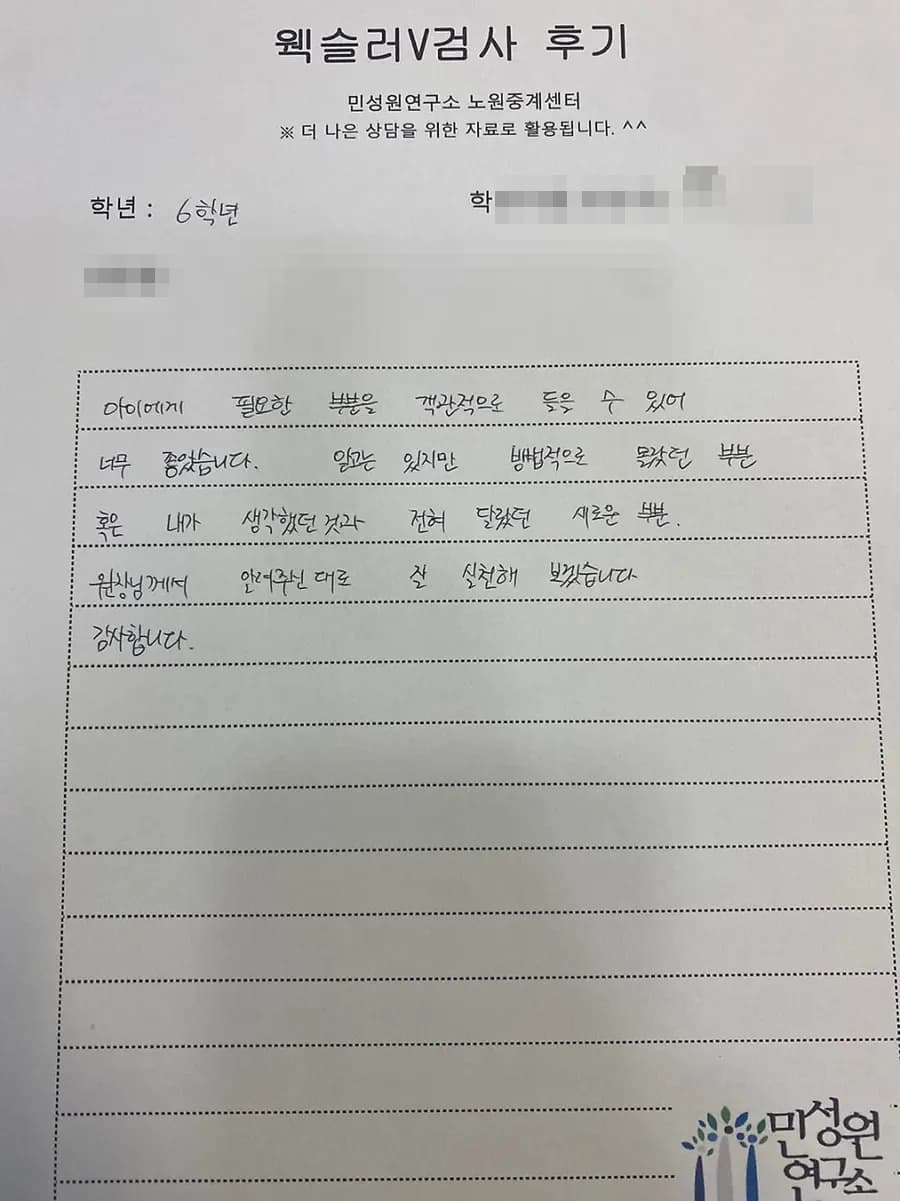 웩슬러V검사 후기
민성원연구소 노원중계센터
※ 더 나은 상담을 위한 자료로 활용됩니다. ^^
학년 : 6학년 학
아이에게 필요한 부분을 객관적으로 들을 수 있어
너무 좋았습니다. 알고는 있지만 방법적으로 몰랐던 부분
혹은 내가 생각했던 것과 전혀 달랐던 새로운 부분.
원장님께서 알려주신 대로 잘 실천해 보겠습니다
감사합니다.
민성원
연구소